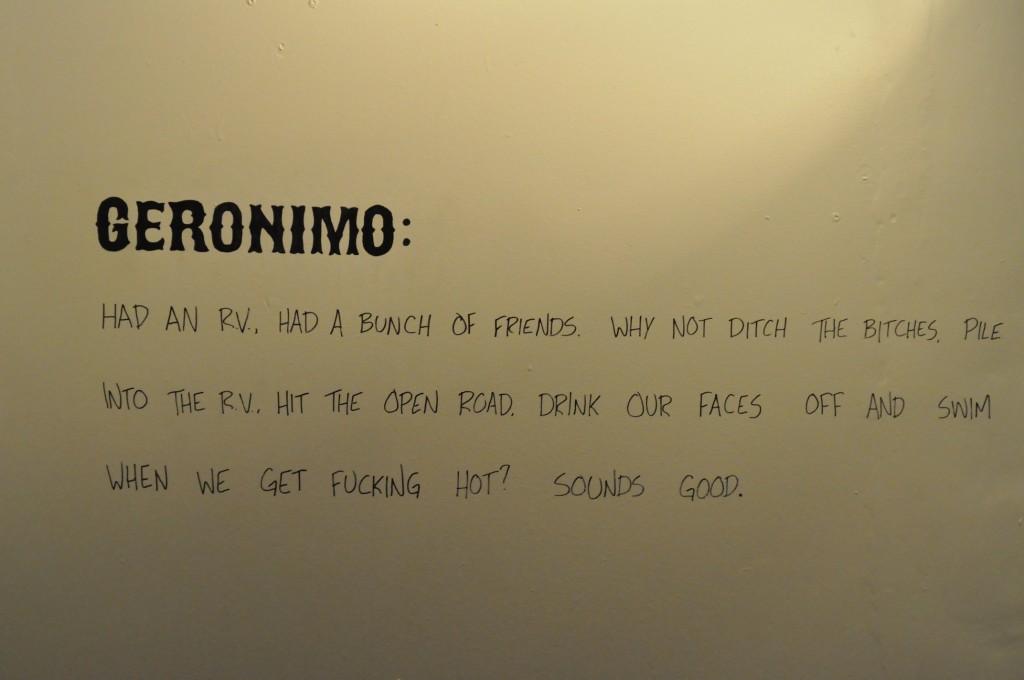 GERONIMO:
HAD AN R.V., HAD A BUNCH OF FRIENDS. WHY NOT DITCH THE BITCHES, PILE
INTO THE R.V., HIT THE OPEN ROAD, DRINK OUR FACES OFF AND SWIM
WHEN WE GET FUCKING HOT? SOUNDS GOOD.